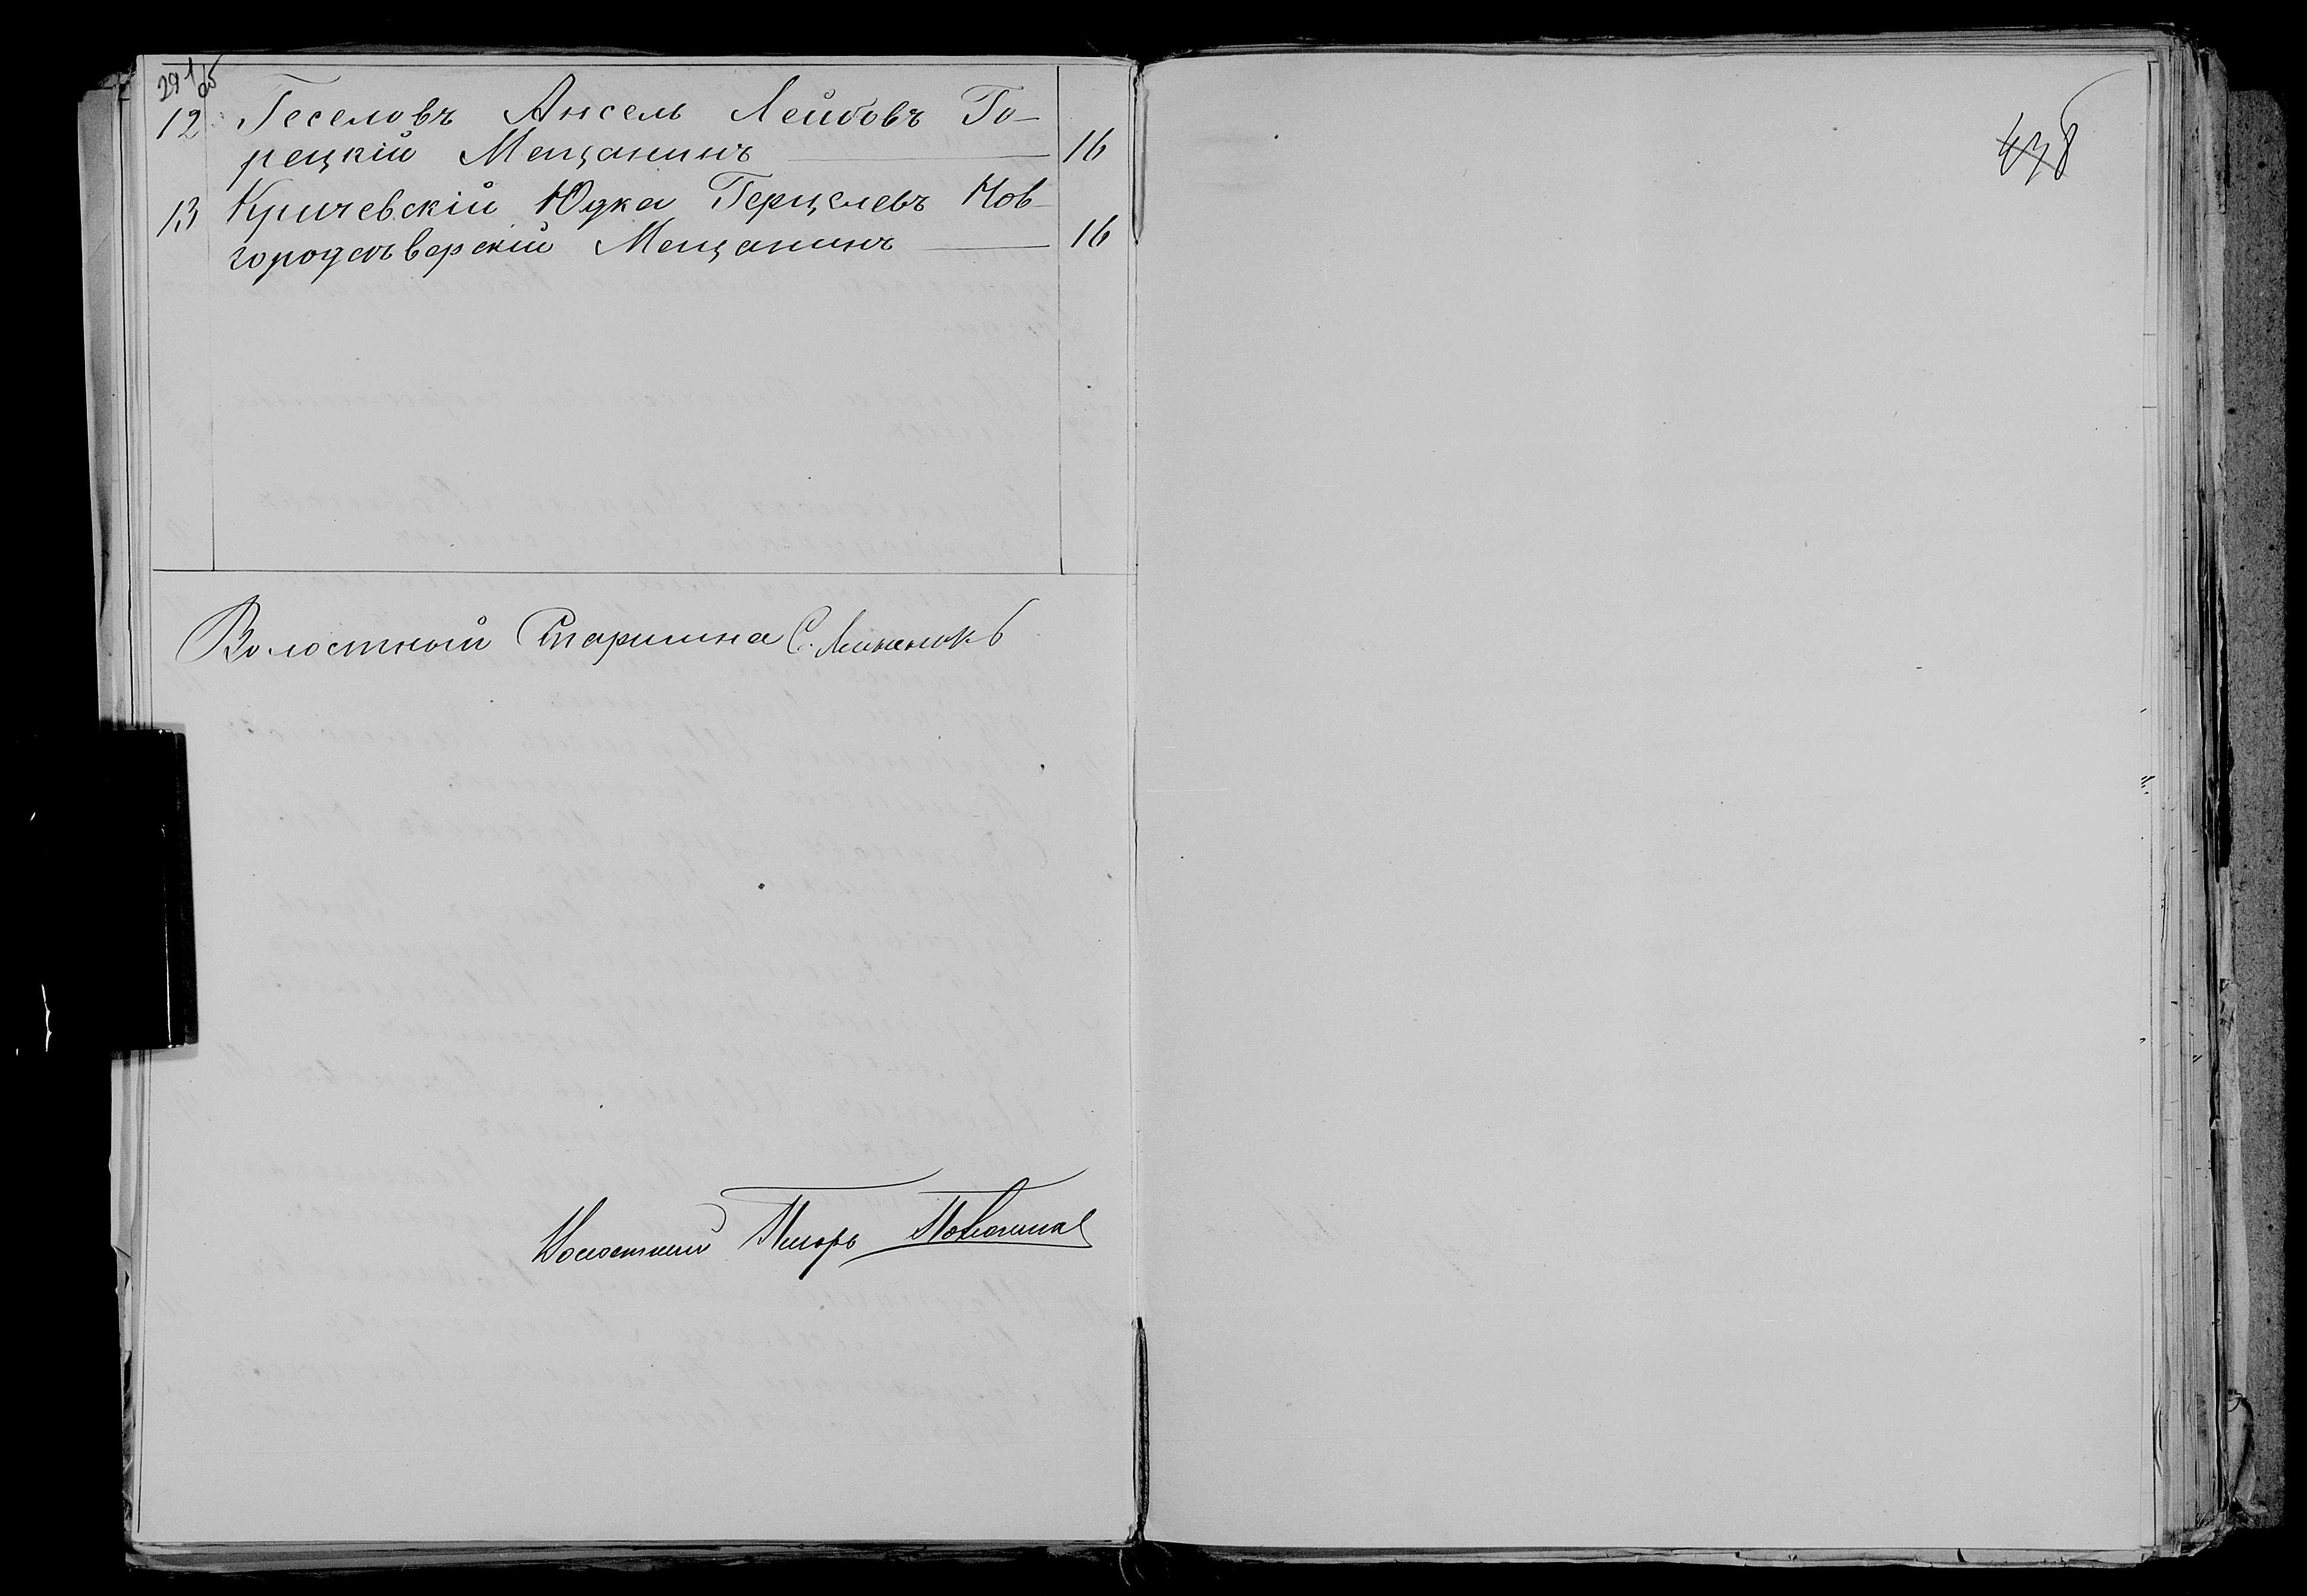 291 об
12 Геселовъ Ансель Лейбовъ Го-
рецкій Мещанинъ — 16
13 Кричевскій Юдка Герцелевъ Нов-
городсѣверскій Мещанинъ — 16
Волостный Старшина С.
Волостный Писарь
438